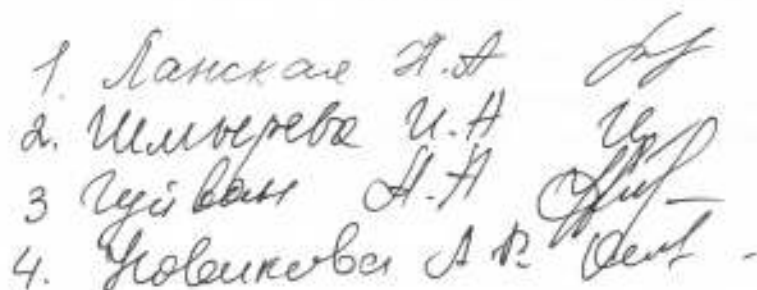 1. Ланская Н.А
2. Шмырева И.Н
3 Гуйван Н.Н
4. Новикова А.В.